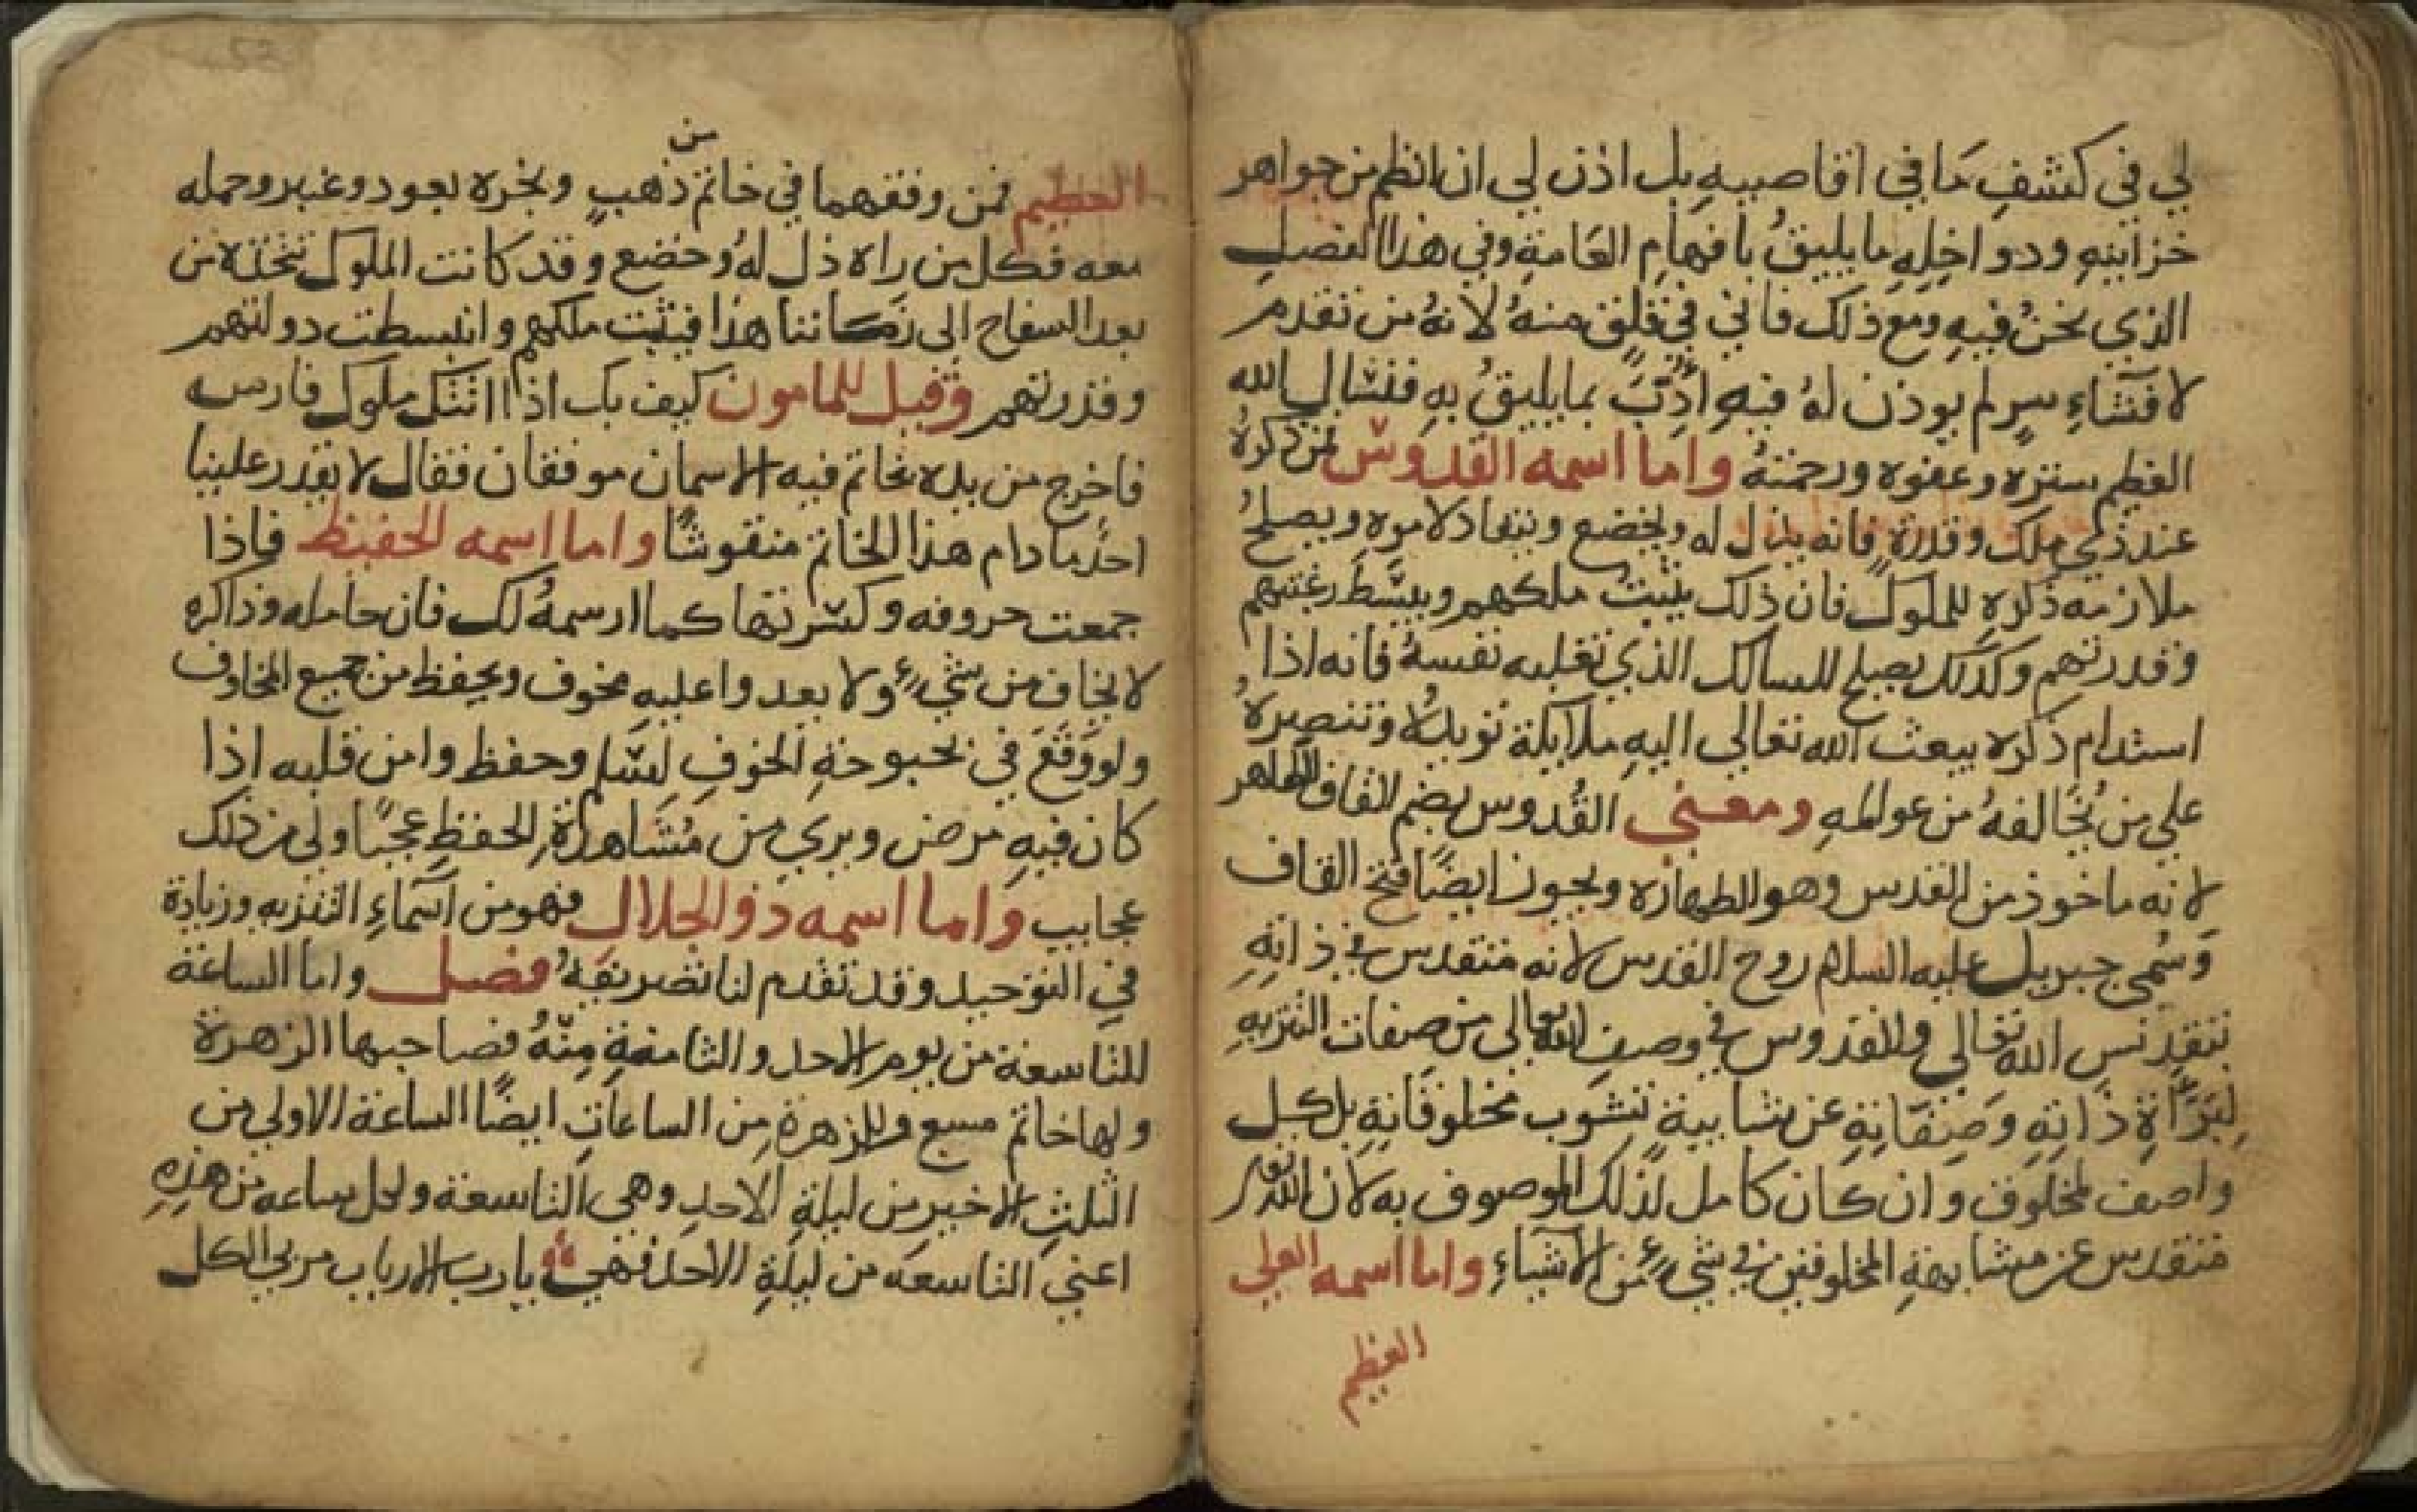 لي في كشف ما في اقاصيه بل اذن لي ان انظم من جواهر
خزاينه ودواخله ما يليق بافهام العامة وفي هذا الفصل
الذي نحن فيه ومع ذلك فاني في قلق منه لانه من تقدم
لافشاء سر لم يوذن له فيه ادب بما يليق به فنسال الله
العظيم ستره وعفوه ورحمته واما اسمه القدوس لمن ذكره
عند ذي ملك وقدرة فانه يذل له ويخضع وينقاد لامره ويصلح
ملازمة ذكره للملوك فان ذلك يثبت ملكهم ويبسط رغبتهم
وقدرتهم وكذلك يصلح للسالك الذي تغلبه نفسه فانه اذا
استدام ذكره يبعث الله تعالى اليه ملايكة تويده وتنصره
على من يخالفه من عوالمه ومعنى القدوس بضم القاف الطاهر
لانه ماخوذ من القدس وهو الطهارة ويجوز ايضًا فتح القاف
وسمى جبريل عليه السلام روح القدس لانه متقدس في ذاته
بتقديس الله تعالى والقدوس في وصف الله تعالى من صفات التنزيه
لتبرأة ذاته وصفاته عن شايبة تشوب مخلوقاته بل كل
واصف مخلوق وان كان كامل لذلك الموصوف به لان الله
متقدس عن مشابهة المخلوقين في شيء من الاشياء واما اسمه العلي
العظيم
52
العظيم فمن وفقهما في خاتم من ذهب وبخره بعود وعنبر وحمله
معه فكل من راه ذل له وخضع وقد كانت الملوك تتخذه من
بعد السفاح الى زماننا هذا فيثبت ملكهم وانبسطت دولتهم
وقدرتهم وقيل للمامون كيف بك اذا اتتك ملوك فارس
فاخرج من يده خاتم فيه الاسمان موفقان فقال لا يقدر علينا
احد ما دام هذا الخاتم منقوشًا واما اسمه الحفيظ فاذا
جمعت حروفه وكسرتها كما ارسمه لك فان حامله وذاكره
لا يخاف من شيء ولا يعدوا عليه مخوف ويحفظ من جميع المخاوف
ولو وقع في بحبوحة الخوف لسلم وحفظ وامن قلبه اذا
كان فيه مرض ويري من مشاهدة الحفظ عجبًا ولي من ذلك
عجايب واما اسمه ذو الجلال فهو من اسماء التنزيه وزيادة
في التوحيد وقد تقدم لنا تصريفه فصل واما الساعة
التاسعة من يوم الاحد والثامنة منه فصاحبها الزهرة
ولها خاتم مسبع وللزهرة من الساعات ايضًا الساعة الاولى من
الثلث الاخير من ليلة الاحد وهي التاسعة ولكل ساعه من هذه
اعني التاسعه من ليلة الاحد فهي يا رب الارباب مربي الكل